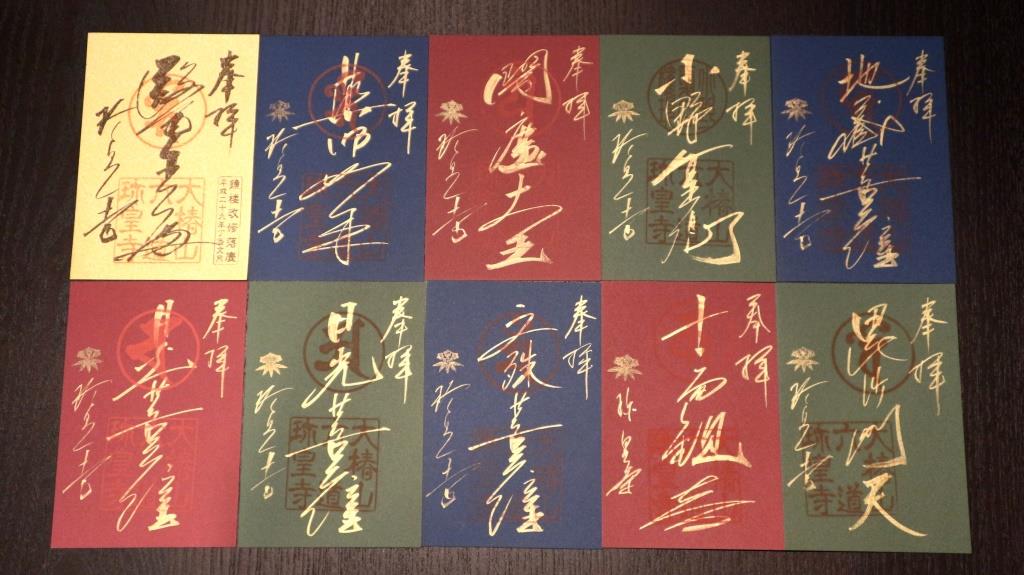 奉拝
珍皇寺
大椿山
六道
珍皇寺
鐘楼改修落慶
奉拝
薬師如来
珍皇寺
奉拝
閻魔大王
珍皇寺
奉拝
小野篁卿
珍皇寺
大椿山
六道
珍皇寺
奉拝
地蔵菩薩
珍皇寺
奉拝
月光菩薩
珍皇寺
奉拝
日光菩薩
珍皇寺
大椿山
六道
珍皇寺
奉拝
文殊菩薩
珍皇寺
奉拝
十一面観音
珍皇寺
奉拝
毘沙門天
珍皇寺
大椿山
六道
珍皇寺